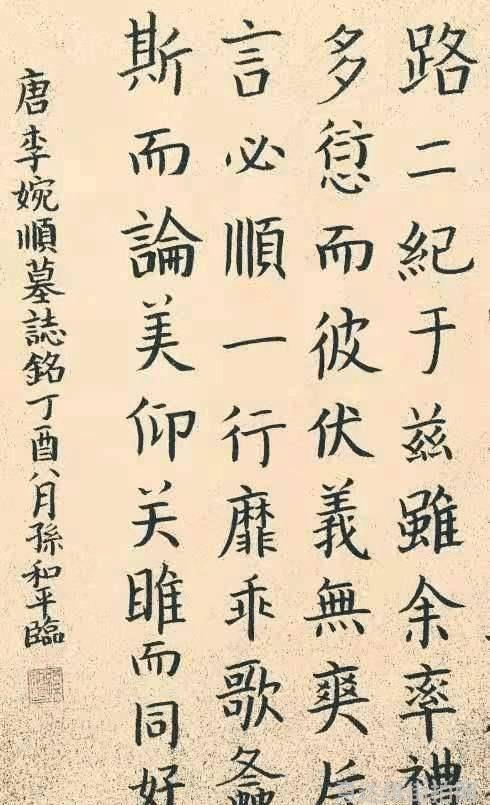 路二紀于茲雖余率禮
多愆而彼伏義無爽片
言必順一行靡乖歌螽
斯而論美仰关雎而同好
唐李婉順墓誌銘丁酉八月孫和平臨